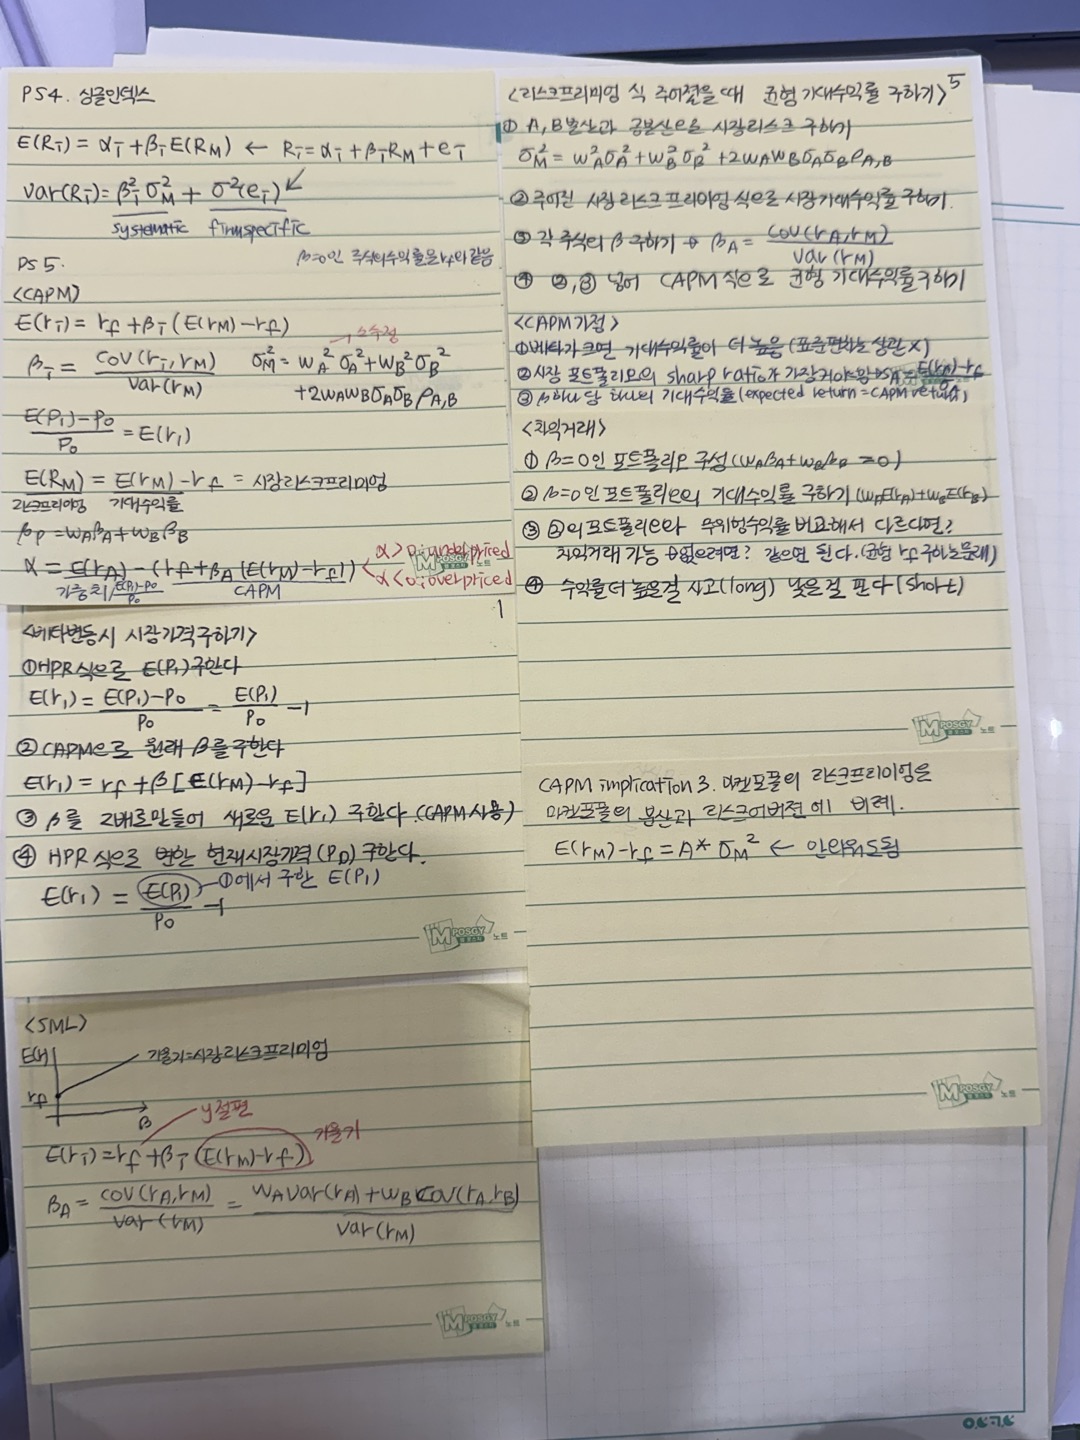 PS4. 싱글인덱스
E(Rī) = αī + βī E(RM) ← Rī = αī + βī RM + eī
var(Rī) = βī² σM² + σ²(eī)
systematic firmspecific
PS 5. β=0인 주식의 수익률은 rf와 같음
<CAPM>
E(rī) = rf + βī (E(rM) - rf)
βī = cov(rī, rM) / var(rM) σM² = wA² σA² + wB² σB²
+2wAwBσAσB ρA,B
E(P1)-P0 / P0 = E(r1)
E(RM) = E(rM) - rf = 시장리스크프리미엄
리스크프리미엄 기대수익률
βp = wAβA + wBβB
α = E(rA) - (rf + βA (E(rM) - rf)) < α>0: underpriced
α<0: overpriced
E(P1)-P0 / P0 CAPM
1
<베타변동시 시장가격구하기>
①HPR식으로 E(P1)구한다
E(r1) = E(P1)-P0 / P0 = E(P1) / P0 -1
②CAPM으로 원래 β를 구한다
E(r1) = rf + β [E(rM) - rf]
③ β를 2배로만들어 새로운 E(r1) 구한다.(CAPM사용)
④ HPR식으로 변한 현재시장가격(P0)구한다.
E(r1) = E(P1) / P0 -1 ①에서 구한 E(P1)
MPOSGY 노트
<SML>
E(r) 기울기=시장리스크프리미엄
rf
β
y절편
E(rī) = rf + βī (E(rM) - rf) 기울기
βA = cov(rA, rM) / var(rM) = wAvar(rA) + wBcov(rA, rB) / var(rM)
MPOSGY 노트
<리스크프리미엄 식 주어졌을 때 균형 기대수익률 구하기> 5
① A,B분산과 공분산으로 시장리스크 구하기
σM² = wA²σA² + wB²σB² + 2wAwBσAσBρA,B
②주어진 시장리스크프리미엄 식으로 시장기대수익률 구하기.
③ 각 주식의 β 구하기 → βA = cov(rA, rM) / var(rM)
④ ②,③ 넣어 CAPM 식으로 균형 기대수익률구하기
<CAPM가정>
①베타가 크면 기대수익률이 더 높음 (표준편차는 상관X)
②시장 포트폴리오의 sharp ratio가 가장커야함→SA = E(rA)-rf / σA
③ β하나당 하나의 기대수익률(expected return = CAPM return)
<차익거래>
① β=0인 포트폴리오 구성(wAβA + wBβB = 0)
② β=0인 포트폴리오의 기대수익률 구하기 (wAE(rA) + wBE(rB))
③ ②의 포트폴리오와 무위험수익률 비교해서 다르다면?
차익거래 가능 없으려면? 같으면 된다.(균형 rf 구하는문제)
④ 수익률 더 높은걸 사고(long) 낮은걸 판다(short)
MPOSGY 노트
CAPM implication 3. 마켓포폴의 리스크프리미엄은
마켓포폴의 분산과 리스크어버전에 비례.
E(rM) - rf = A* σM² ← 안외워도됨
MPOSGY 노트